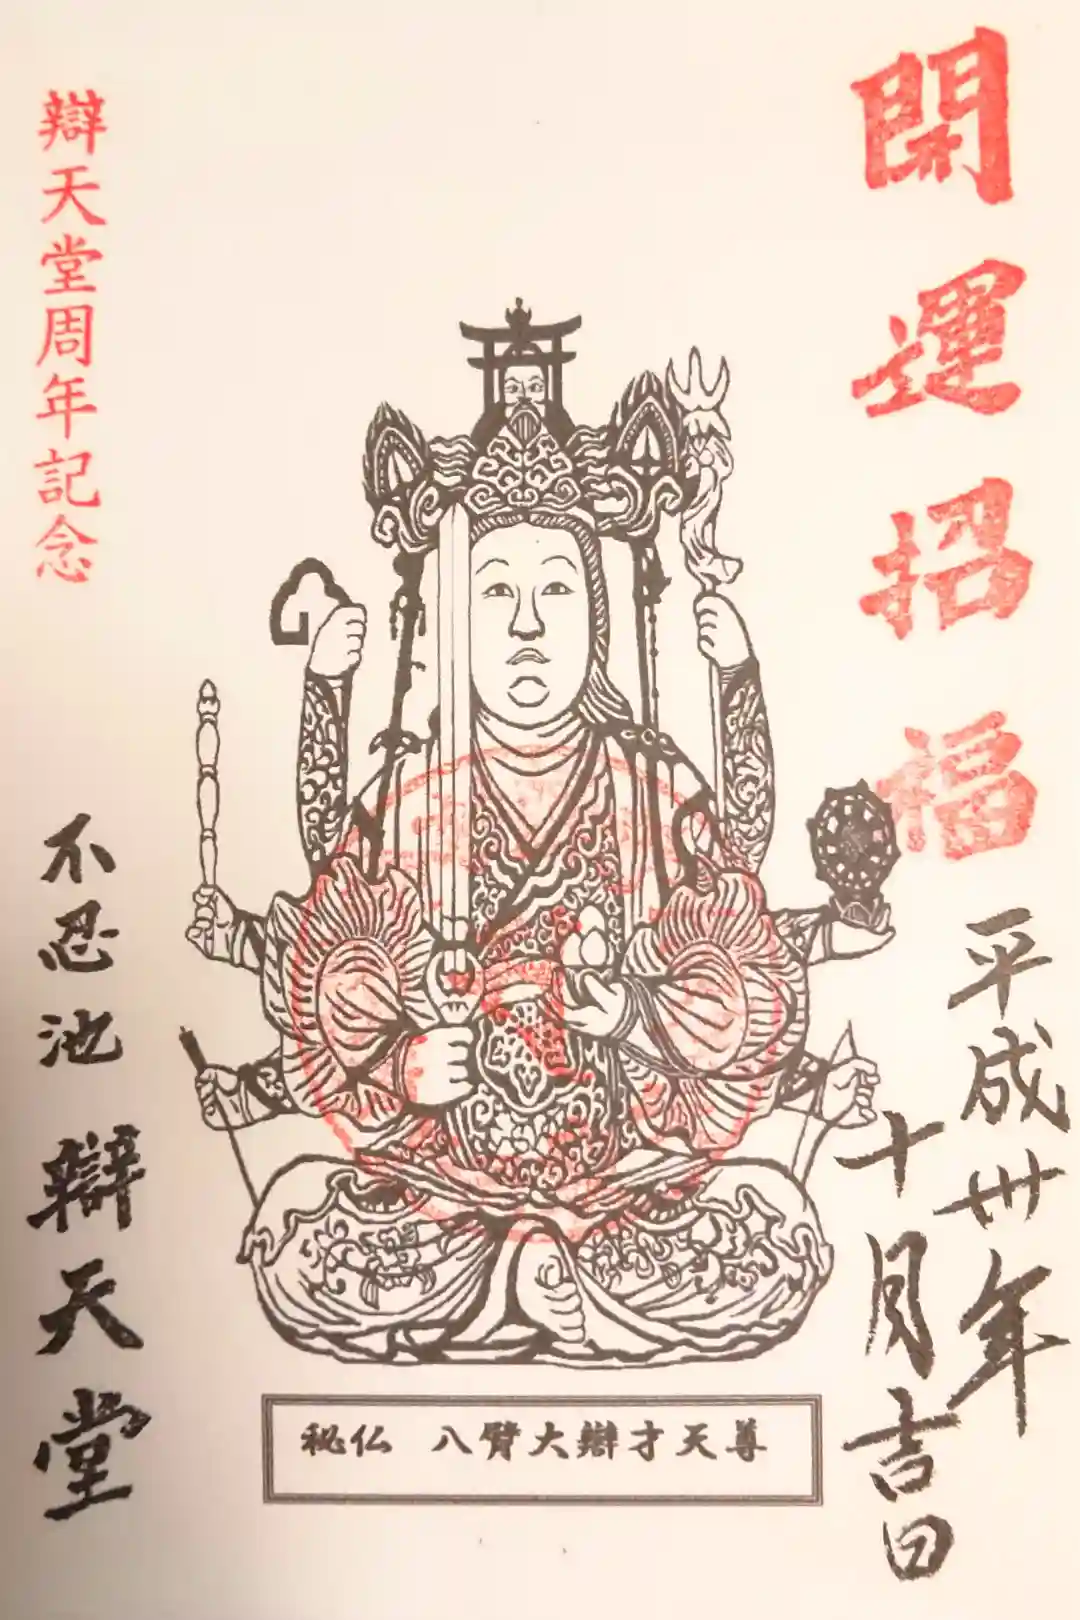 開運招福
平成卅年
十月吉日
辯天堂周年記念
不忍池 辯天堂
秘仏 八臂大辯才天尊